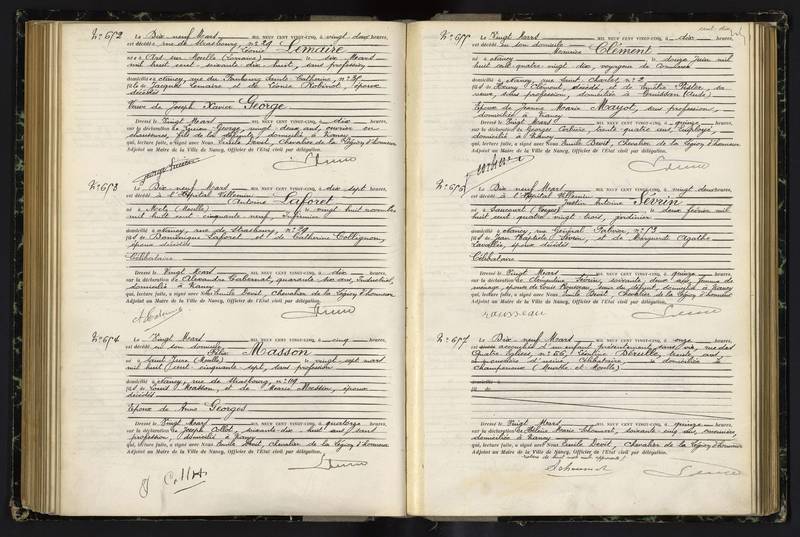 N° 672
Le Dix neuf Mars MIL NEUF CENT VINGT-CINQ, à vingt deux heures,
est décédée rue de Strasbourg, n° 29
Léonie Lemaire
née à Ars sur Moselle (Lorraine) le dix Mars
mil huit cent soixante dix huit, sans profession
domiciliée à Nancy, rue du Faubourg Sainte Catherine, n°
fille de Jacques Lemaire et de Léonie Robinot, époux
décédés
Veuve de Joseph Xavier George
Dressé le Vingt Mars MIL NEUF CENT VINGT-CINQ, à dix heures,
sur la déclaration de Lucien George, vingt deux ans, ouvrier en
chaussures, fils de la défunte, domicilié à Nancy
qui, lecture faite, a signé avec Nous Emile Devit, Chevalier de la Légion d'honneur
Adjoint au Maire de la Ville de Nancy, Officier de l'Etat civil par délégation.
George Lucien
N° 673
Le Dix neuf Mars MIL NEUF CENT VINGT-CINQ, à dix sept heures,
est décédé à l'Hôpital Villemin
Antoine Laforet
né à Metz (Moselle) le vingt huit novembre
mil huit cent cinquante neuf, Infirmier
domicilié à Nancy, rue de Strasbourg, n° 29
fils de Dominique Laforet et de Catherine Collignon,
époux décédés
Célibataire
Dressé le Vingt Mars MIL NEUF CENT VINGT-CINQ, à dix heures,
sur la déclaration de Alexandre Cabernat, quarante six ans, Industriel,
domicilié à Nancy
qui, lecture faite, a signé avec Nous Emile Devit, Chevalier de la Légion d'honneur
Adjoint au Maire de la Ville de Nancy, Officier de l'Etat civil par délégation.
N° 674
Le Vingt Mars MIL NEUF CENT VINGT-CINQ, à cinq heures,
est décédé en son domicile
Félix Masson
né à Saint Jure (Moselle) le vingt sept mars
mil huit cent cinquante sept, sans profession
domicilié à Nancy, rue de Strasbourg, n° 119
fils de Louis Masson, et de Marie Masson, époux
décédés
Epoux de Anne Georges
Dressé le Vingt Mars MIL NEUF CENT VINGT-CINQ, à quatorze heures,
sur la déclaration de Joseph Collot, soixante dix huit ans, sans
profession, domicilié à Nancy
qui, lecture faite, a signé avec Nous Emile Devit, Chevalier de la Légion d'honneur
Adjoint au Maire de la Ville de Nancy, Officier de l'Etat civil par délégation.
J Collot
N° 675
Le Vingt Mars MIL NEUF CENT VINGT-CINQ, à dix heures,
est décédé en son domicile
Maurice Clément
né à Nancy le douze Juin mil
huit cent quatre vingt dix, voyageur de commerce
domicilié à Nancy, rue Saint Charles, n° 2
fils de Henry Clément, décédé, et de
veuve, sans profession, domiciliée à (Aude)
Epoux de Jeanne Marie Mayot, sans profession,
domiciliée à Nancy
Dressé le Vingt Mars MIL NEUF CENT VINGT-CINQ, à quinze heures,
sur la déclaration de Georges trente quatre ans, Employé,
domicilié à Nancy
qui, lecture faite, a signé avec Nous Emile Devit, Chevalier de la Légion d'honneur
Adjoint au Maire de la Ville de Nancy, Officier de l'Etat civil par délégation.
N° 676
Le Dix neuf Mars MIL NEUF CENT VINGT-CINQ, à vingt deux heures,
est décédé à l'Hôpital Villemin
Justin Antoine Sévrin
né à (Vosges) le deux février mil
huit cent quatre vingt trois, jardinier
domicilié à Nancy, rue Général n° 13
fils de Jean Baptiste Sévrin, et de Marguerite Agathe
Lavallée, époux décédés
Célibataire
Dressé le Vingt Mars MIL NEUF CENT VINGT-CINQ, à quinze heures,
sur la déclaration de Clémentine Sévrin, soixante deux ans, femme de
ménage, épouse de Louis Rousseau, soeur du défunt, domiciliée à Nancy
qui, lecture faite, a signé avec Nous Emile Devit, Chevalier de la Légion d'honneur
Adjoint au Maire de la Ville de Nancy, Officier de l'Etat civil par délégation.
rousseau
N° 677
Le Dix neuf Mars MIL NEUF CENT VINGT-CINQ, à onze heures,
est accouchée d'un enfant présentement sans vie, rue des
Quatre Eglises, n° 56, Léontine trente ans,
Célibataire, domiciliée à
Champenoux (Meurthe et Moselle)
domicilié à
fil de
Dressé le Vingt Mars MIL NEUF CENT VINGT-CINQ, à quinze heures,
sur la déclaration de Hélène Marie soixante cinq ans,
domiciliée à Nancy
qui, lecture faite, a signé avec Nous Emile Devit, Chevalier de la Légion d'honneur
Adjoint au Maire de la Ville de Nancy, Officier de l'Etat civil par délégation.